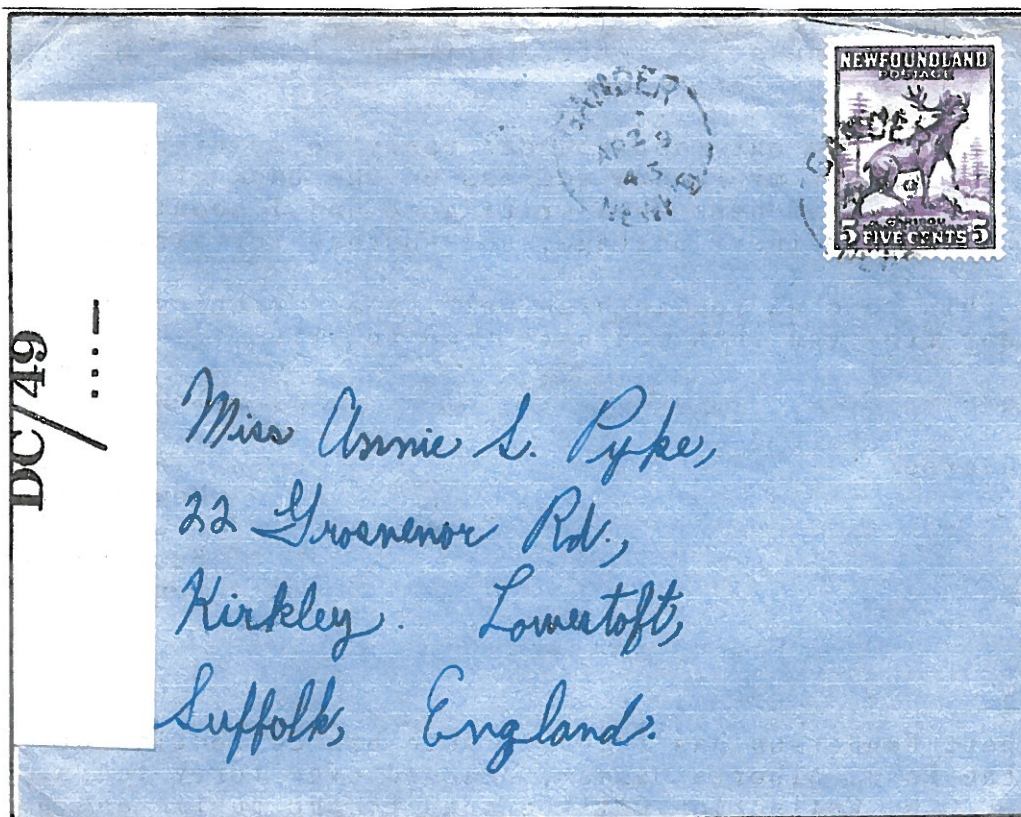 NEWFOUNDLAND
POSTAGE
CARIBOU
5 FIVE CENTS 5
GANDER
AP 29
43
NEWF'D
GANDE
DC/49
Miss Annie S. Pyke,
22 Grosvenor Rd.,
Kirkley. Lowestoft,
Suffolk, England.